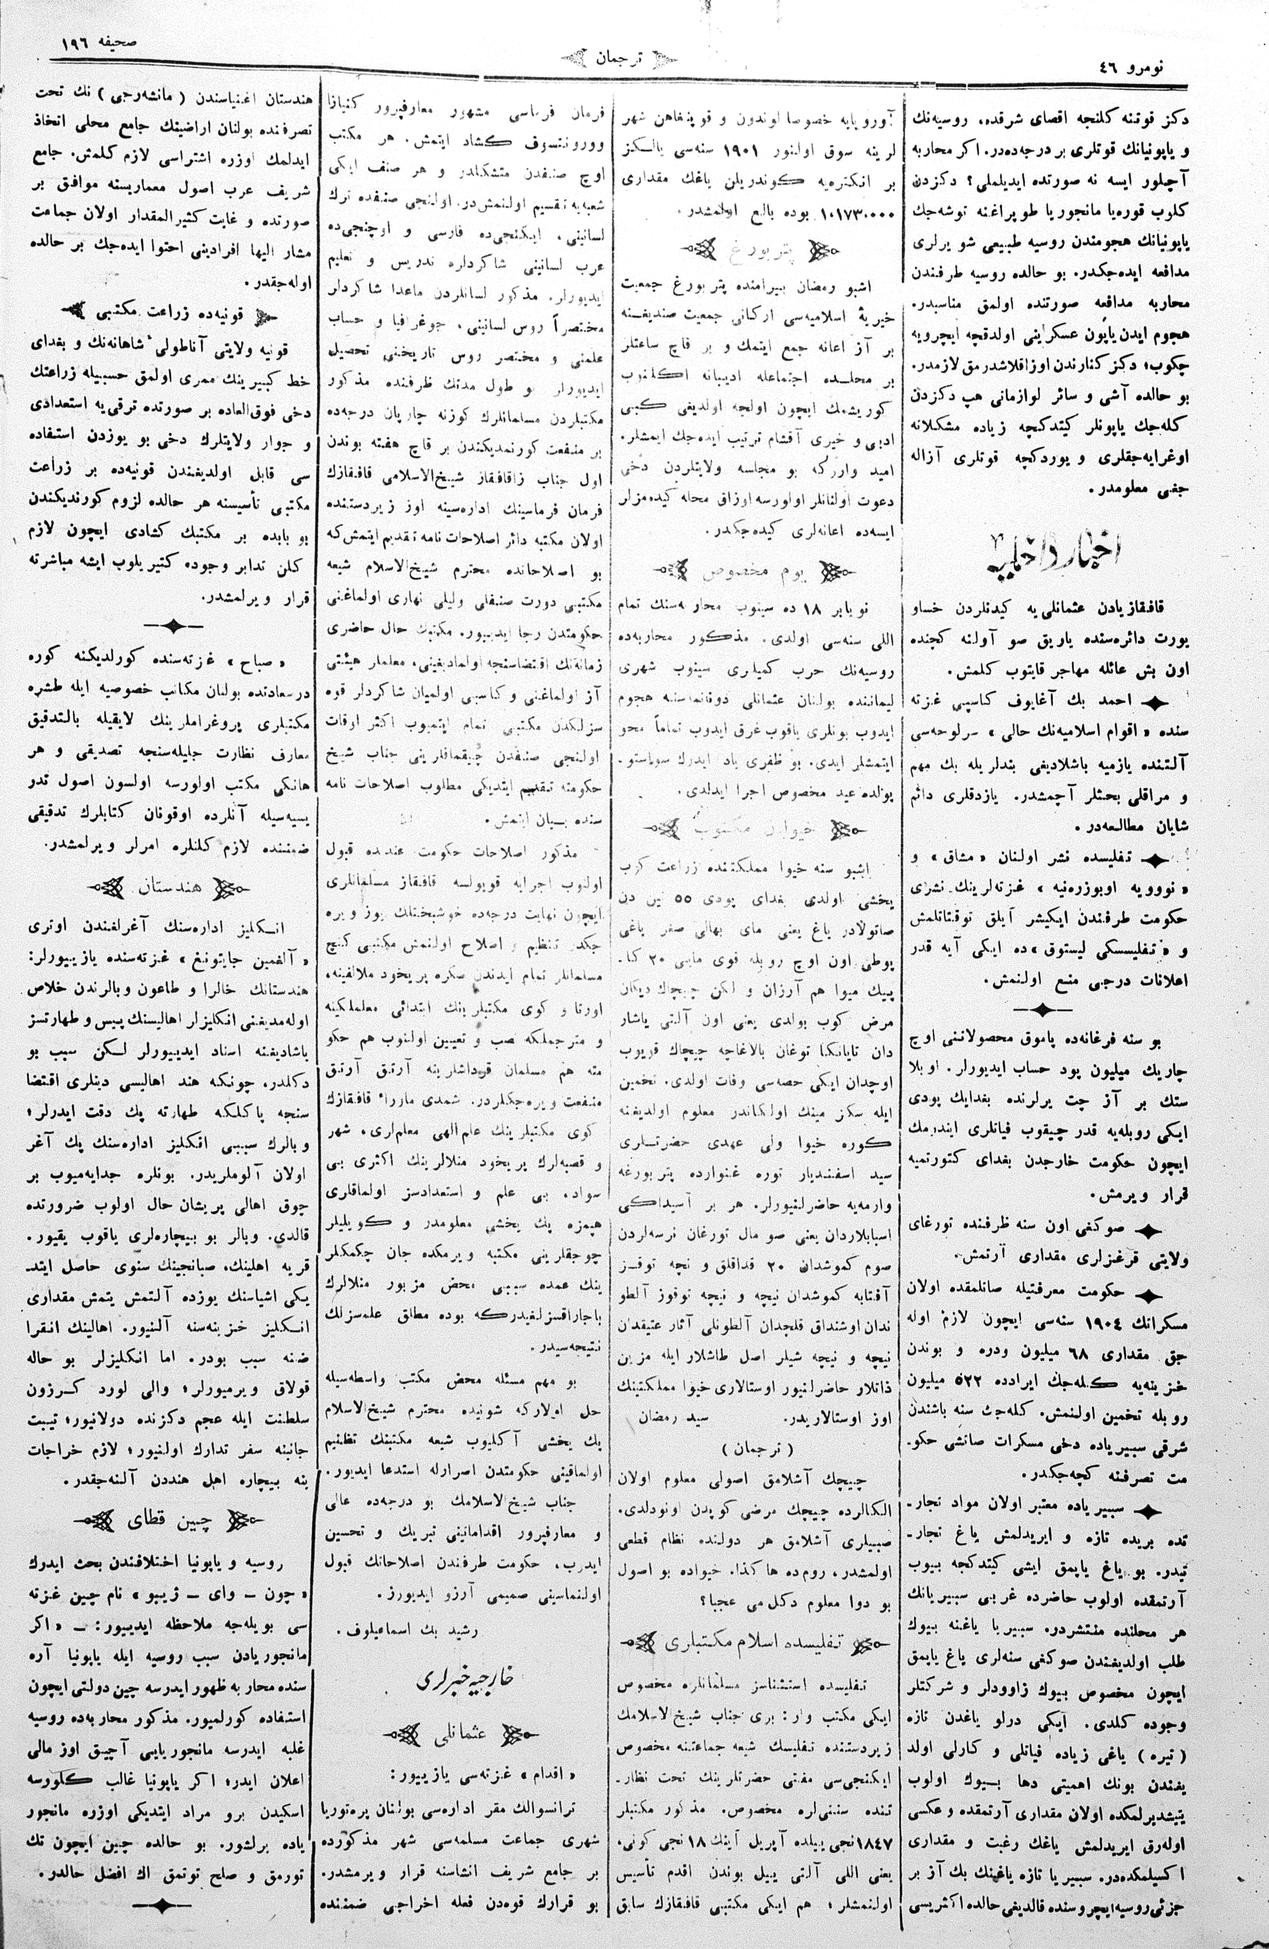 نومرو ٤٦
ترجمان
صحيفه ١٩٦
دكز قوتنه كلنجه اقصای شرقده، روسيه‌نك
و ياپونيانك قوتلری بر درجه‌ده‌در. اكر محاربه
آچلور ايسه نه صورتده ايديلملی؟ دكزدن
كلوب قوره‌يا مانجوريا طوپراغنه توشه‌جك
ياپونيانك هجومندن روسيه طبيعی شو يرلری
مدافعه ايده‌جكدر. بو حالده روسيه طرفندن
محاربه مدافعه صورتنده اولمق مناسبدر.
هجوم ايدن ياپون عسكرينی اولدقچه ايچرويه
چكوب؛ دكز كنارندن اوزاقلاشدرمق لازمدر.
بو حالده آشی و سائر لوازماتی هپ دكزدن
كله‌جك ياپونلر كيتدكچه زياده مشكلاته
اوغرايه‌جقلری و يوردكچه قوتلری آزاله
جغی معلومدر.
اخبار داخليه
قافقازيادن عثمانلی يه كيدنلردن خساو
يورت دائره‌سنده ياريق صو آولنه كچنده
اون بش عائله مهاجر قايتوب كلمش.
احمد بك آغايوف كاسپی غزته
سنده «اقوام اسلاميه‌نك حالی» سرلوحه‌سی
آلتنده يازميه باشلاديغی بندلريله بك مهم
و مراقلی بحثلر آچمشدر. يازدقلری دائم
شايان مطالعه‌در.
تفليسده نشر اولنان «مشاق» و
«نوويه اوبوزره‌نيه» غزته‌لرينك نشری
حكومت طرفندن ايكيشر آيلق توقتاتلمش
و «تفليسسكی ليستوق»ده ايكی آيه قدر
اعلانات درجی منع اولنمش.
بو سنه فرغانه‌ده پاموق محصولاتنی اوچ
چاريك ميليون پود حساب ايديورلر. اوبلا
ستك بر آز چت يرلرنده بغدايك پودی
ايكی روبله‌يه قدر چيقوب فياتلری ايندرمك
ايچون حكومت خارجدن بغدای كتورتميه
قرار ويرمش.
صوكغی اون سنه ظرفنده تورغای
ولايتی قرغزلری مقداری آرتمش.
حكومت معرفتيله صاتلمقده اولان
مسكراتك ١٩٠٤ سنه‌سی ايچون لازم اوله
جق مقداری ٦٨ ميليون ودره و بوندن
خزينه‌يه كله‌جك ايرادده ٥٢٢ ميليون
روبله تخمين اولنمش. كله‌جك سنه باشندن
شرقی سبيرياده دخی مسكرات صاتشی حكو-
مت تصرفنه كچه‌جكدر.
سبيرياده معتبر اولان مواد تجار-
تده بريده تازه و ايريدلمش ياغ تجار-
تيدر. بو ياغ يايمق ايشی كيتدكجه بيوب
آرتمقده اولوب حاضرده غربی سبيريانك
هر محلنده منتشردر. سبيريا ياغنه بيوك
طلب اولديغندن صوكغی سنه‌لری ياغ يايمق
ايچون مخصوص بيوك زاوودلر و شركتلر
وجوده كلدی. ايكی درلو ياغدن تازه
(تيره) ياغی زياده فياتلی و كارلی اولد
يغندن بونك اهميتی دها بيوك اولوب
يتيشديرلمكده اولان مقداری آرتمقده وعكسی
اوله‌رق ايريدلمش ياغك رغبت و مقداری
اكسيلمكده‌در. سبيريا تازه ياغينك بك آز بر
جزئی روسيه ايچروسنده قالديغی حالده اكثريسی
آوروپايه خصوصا لوندون و قوپنهاهن شهر
لرينه سوق اولنور ١٩٠١ سنه‌سی يالكز
بر انكلتره‌يه كوندريلن ياغك مقداری
١٠١٧٣٠٠٠٠ پوده بالغ اولمشدر.
پتر بورغ
اشبو رمضان بيرامنده پتربورغ جمعيت
خيريۀ اسلاميه‌سی اركانی جمعيت صنديغنه
بر آز اعانه جمع ايتمك و بر قاچ ساعتلر
بر مجلسده اجتماعله اديبانه اكلنوب
كوريشمك ايچون اولجه اولديغی كبی
ادبی و خيری آقشام ترتيب ايده‌جك ايمشلر.
اميد واركه بو مجلسه ولايتلردن دخی
دعوت اولنانلر اولورسه اوزاق محله كيده‌مزلر
ايسه‌ده اعانه‌لری كيده‌جكدر.
يوم مخصوص
نويابر ١٨ ده سينوب محاربه‌سنك تمام
اللی سنه‌سی اولدی. مذكور محاربه‌ده
روسيه‌نك حرب كميلری سينوب شهری
ليماننده بولنان عثمانلی دونانماسنه هجوم
ايدوب بونلری ياقوب غرق ايدوب تماماً محو
ايتمشلر ايدی. بو ظفری ياد ايدرك سواستو-
پولده عيد مخصوص اجرا ايدلدی.
خيوادن مكتوب
اشبو سنه خيوا مملكتنده زراعت كوب
يخشی اولدی بغدای پودی ٥٥ تين دن
صاتولادر ياغ يعنی مای بهالی صغر ياغی
پوطی اون اوچ روبله قوی مايی ٢٠ كا.
پيك ميوا هم آرزان و لكن چيچاك ديكان
مرض كوب بولدی يعنی اون آلتی ياشار
دان تايانكا توغان بالاغاچه چيچاك قريوب
اوچدان ايكی حصه‌سی وفات اولدی. تخمين
ايله سكز مينك اولكاندر معلوم اولديغنه
كوره خيوا ولی عهدی حضرتلری
سيد اسفنديار توره غنوارده پتربورغه
وارمه‌يه حاضرلنيورلر. هر بر آسيداكی
اسبابلاردان يعنی صو مال تورغان نرسه‌لردن
صوم كموشدان ٢٠ قداقلق و نچه توقـز
آفتابه كموشدان نيچه و نيچه توقوز آلطو
ندان اوشنداق قلچدان آلطونلی آثار عتيقدن
نيچه و نيچه شيلر اصل طاشلار ايله مزين
ذاتلار حاضرلنيور اوستالاری خيوا مملكتينك
اوز اوستالاريدر. سيد رمضان
(ترجمان)
چيچك آشلامق اصولی معلوم اولان
الكالرده چيچك مرضی كوپدن اونودلدی.
صبيلری آشلامق هر دولتده نظام قطعی
اولمشدر، روم‌ده ها كذا. خيواده بو اصول
بو دوا معلوم دكل می عجبا؟
تفليسده اسلام مكتبلری
تفليسده استثناسز مسلمانلره مخصوص
ايكی مكتب وار: بری جناب شيخ‌الاسلامك
زيردستنده تفليسك شيعه جماعتنه مخصوص
ايكنجی‌سی مفتی حضرتلرينك تحت نظار-
تنده سنی‌لره مخصوص. مذكور مكتبلر
١٨٤٧نجی ييلده آپريل آينك ١٨ نجی كونی.
يعنی اللی آلتی ييل بوندن اقدم تأسيس
اولنمشلر؛ هم ايكی مكتبی قافقازك سابق
فرمان فرماسی مشهور معارفپرور كنيازا
وورونتسوف كشاد ايتمش. هر مكتب
اوچ صنفدن متشكلدر و هر صنف ايكی
شعبه‌يه تقسيم اولنمش‌در. اولنجی صنفده ترك
لسانينی، ايكنجی‌ده فارسی و اوچنجی‌ده
عرب لسانينی شاكردلره تدريس و تعليم
ايديورلر. مذكور لسانلردن ماعدا شاكردلر
مختصراً روس لسانينی، جوغرافيا و حساب
علمنی و مختصر روس تاريخنی تحصيل
ايديورلر. بو طول مدتك ظرفنده مذكور
مكتبلردن مسلمانلرك كوزنه چارپان درجه‌ده
بر منفعت كورنمديكندن بر قاچ هفته بوندن
اول جناب زاقافقاز شيخ‌الاسلامی قافقازك
فرمان فرماسينك اداره‌سينه اوز زيردستنده
اولان مكتبه دائر اصلاحات نامه تقديم ايتمش‌كه
بو اصلاحاتده محترم شيخ‌الاسلام شيعه
مكتبی دورت صنفلی وليلی نهاری اولماغنی
حكومتدن رجا ايديبور. مكتبك حال حاضری
زمانه‌نك اقتضاسنجه اولمادیغينی، معلمار هيئتی
آز اولماغنی و كاسبی اولميان شاكردلر قوه
سزلكدن مكتبی تمام ايتميوب اكثر اوقات
اولنجی صنفدن چيقماقلرينی جناب شيخ
حكومته تقديم ايتديكی مطلوب اصلاحات نامه
سنده بيان ايتمش.
مذكور اصلاحات حكومت عندنده قبول
اولنوب اجرايه قويولسه قافقاز مسلمانلری
ايچون نهايت درجه‌ده خوشبختلك يوز ويره
جكدر تنظيم و اصلاح اولنمش مكتبی كنچ
مسلمانلر تمام ايدندن سكره پريخود ملالغينه،
اورتا و كوی مكتبلرينك ابتدائی معلملكينه
و مترجملكه نصب و تعيين اولنوب هم حكو
مته هم مسلمان قرداشلرينه آرتق آرتق
منفعت ويره‌جكلردر. شمدی ماوراء قافقازك
كوی مكتبلرينك عام‌الهی معلم‌لری، شهر
و قصبه‌لرك پريخود ملالرينك اكثری بی
سواد، بی علم و استعدادسز اولماقلری
هپمزه پك يخشی معلومدر و كويليلر
چوجقلرينی مكتبه ويرمكده جان چكمكلر
ينك عمده سببی محض مزبور منلالرك
باجاراقسزلغيدر كه بوده مطلق علمسزلك
نتيجه‌سيدر.
بو مهم مسئله محض مكتب واسطه‌سيله
حل اولاركه شونيده محترم شيخ‌الاسلام
پك يخشی آكليوب شيعه مكتبنك تنظيم
اولماقينی حكومتدن اصرارله استدعا ايديور.
جناب شيخ‌الاسلامك بو درجه‌ده عالی
و معارفپرور اقداماتينی تبريك و تحسين
ايدرب، حكومت طرفندن اصلاحاتك قبول
اولنماسينی صميمی آرزو ايديورز.
رشيد بك اسماعيلوف.
خارجيه خبرلری
عثمانلی
«اقدام» غزته‌سی يازيبور:
ترانسوالك مقر اداره‌سی بولنان پره‌توريا
شهری جماعت مسلمه‌سی شهر مذكورده
بر جامع شريف انشاسنه قرار ويرمشدر.
بو قرارك قوه‌دن فعله اخراجی ضمننده
هندستان اغنياسندن (مانشه‌رجی) نك تحت
تصرفنده بولنان اراضينك جامع محلی اتخاذ
ايدلمك اوزره اشتراسی لازم كلمش. جامع
شريف عرب اصول معماريسنه موافق بر
صورتده و غايت كثيرالمقدار اولان جماعت
مشار اليها افرادينی احتوا ايده‌جك بر حالده
اوله‌جقدر.
قونيه‌ده زراعت مكتبی
قونيه ولايتی آناطولیء شاهانه‌نك و بغدای
خط كبيرينك ممری اولمق حسبيله زراعتك
دخی فوق‌العاده بر صورتده ترقی‌يه استعدادی
و جوار ولايتلرك دخی بو يوزدن استفاده
سی قابل اولديغندن قونيه‌ده بر زراعت
مكتبی تأسيسنه هر حالده لزوم كورنديكندن
بو بابده بر مكتبك كشادی ايچون لازم
كلن تدابر وجوده كتيريلوب ايشه مباشرته
قرار ويرلمشدر.
«صباح» غزته‌سنده كورلديكنه كوره
درسعادتده بولنان مكاتب خصوصيه ايله طشره
مكتبلری پروغراملرينك لايقيله بالتدقيق
معارف نظارت جليله‌سنجه تصديقی و هر
هانكی مكتب اولورسه اولسون اصول تدر
يسيه‌سيله آنلرده اوقونان كتابلرك تدقيقی
ضمننده لازم كلنلره امرلر ويرلمشدر.
هندستان
انكليز اداره‌سنك آغرلغندن اوتری
«آلفمين جايتونغ» غزته‌سنده يازيبورلر:
هندستانك خالرا و طاعون وبالرندن خلاص
اوله‌مديغنی انكليزلر اهالينك پيس و طهارتسز
ياشاديغنه اسناد ايديبورلر لكن سبب بو
دكلدر، چونكه هند اهاليسی دينلری اقتضا
سنجه پاكلكه طهارته پك دقت ايدرلر؛
وبالرك سببی انكليز اداره‌سنك پك آغر
اولان آلوملريدر. بونلره جدايه‌ميوب بر
چوق اهالی پريشان حال اولوب ضرورتده
قالدی. وبالر بو بيچاره‌لری ياقوب يقيور.
قريه اهلينك، صبانجينك سنوی حاصل ايتد-
يكی اشياسنك يوزده آلتمش يتمش مقداری
انكليز خزينه‌سنه آلنيور. اهالينك انقرا
ضنه سبب بودر. اما انكليزلر بو حاله
قولاق ويرميورلر؛ والی لورد كرزون
سلطنت ايله عجم دكزنده دولانيور؛ تيبت
جانبنه سفر تدارك اولنيور؛ لازم خراجات
ينه بيچاره اهل هنددن آلنه‌جقدر.
چين قطای
روسيه و ياپونيا اختلافندن بحث ايدرك
«چون - وای - ژيبو» نام چين غزته
سی بويله‌جه ملاحظه ايديبور: - «اكر
مانجوريادن سبب روسيه ايله ياپونيا آره
سنده محاربه ظهور ايدرسه چين دولتی ايچون
استفاده كورلميور. مذكور محاربه‌ده روسيه
غلبه ايدرسه مانجوريايی آچيق اوز مالی
اعلان ايدر؛ اكر ياپونيا غالب كلورسه
اسكيدن برو مراد ايتديكی اوزره مانجور
ياده برلشور. بو حالده چين ايچون تك
تورمق و صلح توتمق اك افضل حالدر.